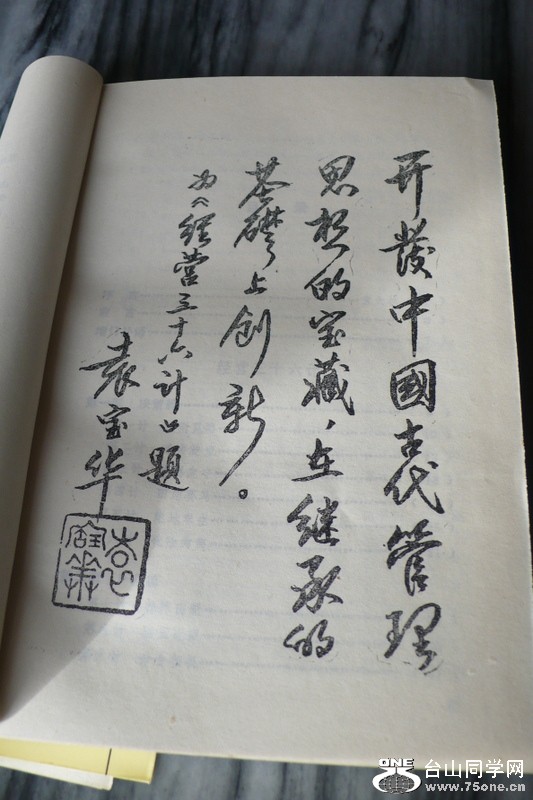 开發中國古代管理
思想的宝藏，在继承的
基礎上创新。
为《经营三十六计》题
袁宝华
袁宝华
ONE
台山同学网
www.75one.cn